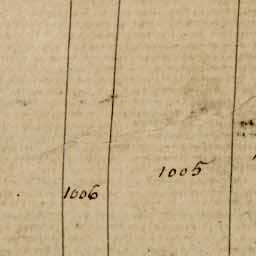 1005
1006